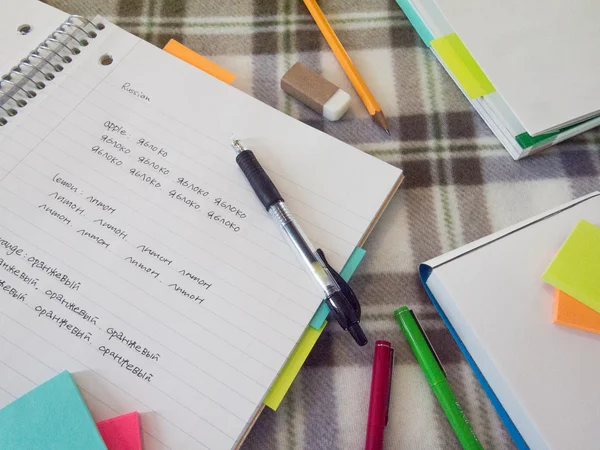 Russian
apple : яблоко
яблоко яблоко яблоко яблоко
яблоко яблоко яблоко яблоко
lemon : лимон
лимон лимон. лимон лимон
лимон. лимон. лимон. лимон
оранжевый
оранжевый. оранжевый
оранжевый оранжевый